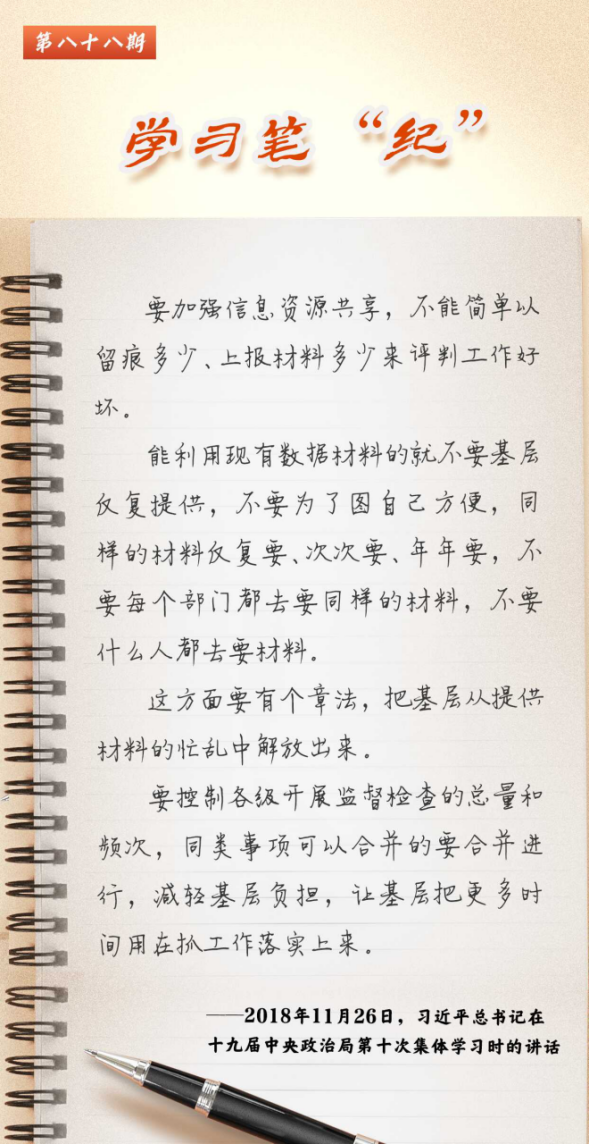 第八十八期
学习笔“纪”
要加强信息资源共享，不能简单以
留痕多少、上报材料多少来评判工作好
坏。
能利用现有数据材料的就不要基层
反复提供，不要为了图自己方便，同
样的材料反复要、次次要、年年要，不
要每个部门都去要同样的材料，不要
什么人都去要材料。
这方面要有个章法，把基层从提供
材料的忙乱中解放出来。
要控制各级开展监督检查的总量和
频次，同类事项可以合并的要合并进
行，减轻基层负担，让基层把更多时
间用在抓工作落实上来。
——2018年11月26日，习近平总书记在
十九届中央政治局第十次集体学习时的讲话